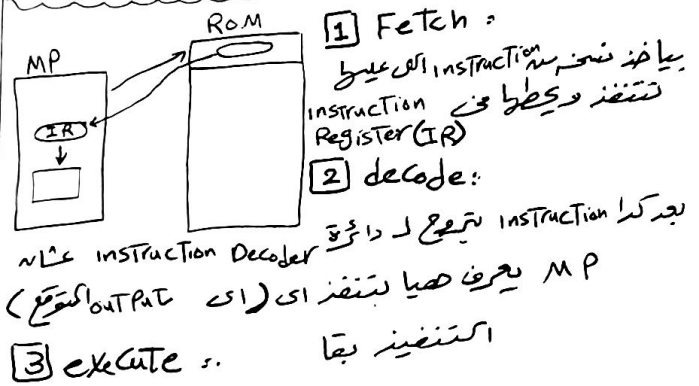 ROM
MP
IR
1 Fetch :
بياخذ نسخه من instruction اللي عليها
تتنفذ ويحطها في instruction
Register (IR)
2 decode :
بعد كدا instruction بتروح لـ دائرة
instruction Decoder عشان
MP يعرف هيا بتنفذ اى (اى output المتوقع)
3 execute : التنفيذ بقا